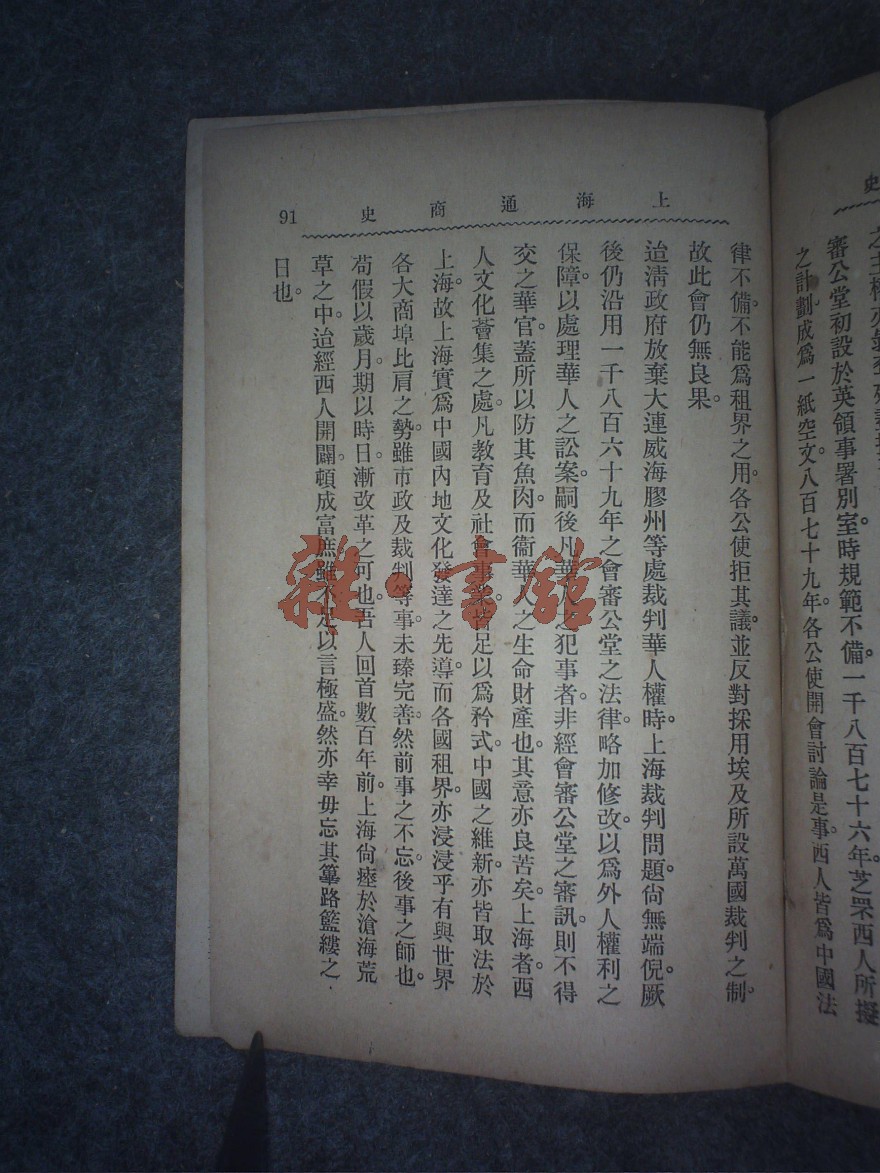 史
審公堂初設於英領事署別室。時規範不備。一千八百七十六年芝罘西人所擬
之計劃。成爲一紙空文。八百七十九年。各公使開會討論是事。西人皆爲中國法
上海通商史
91
律不備。不能爲租界之用。各公使拒其議。並反對採用埃及所設萬國裁判之制。
故此會仍無良果。
迨清政府放棄大連威海膠州等處裁判華人權時。上海裁判問題。尙無端倪。厥
後仍沿用一千八百六十九年之會審公堂之法律。略加修改。以爲外人權利之
保障。以處理華人之訟案。嗣後凡華人之犯事者。非經會審公堂之審訊。則不得
交之華官。蓋所以防其魚肉。而衞華人之生命財產也。其意亦良苦矣。上海者。西
人文化薈集之處。凡教育及社會事業。皆足以爲矜式。中國之維新。亦皆取法於
上海。故上海實爲中國內地文化發達之先導。而各國租界。亦浸浸乎有與世界
各大商埠比肩之勢。雖市政及裁判等事。未臻完善。然前事之不忘。後事之師也。
苟假以歲月。期以時日。漸改革之可也。吾人回首數百年前。上海尙瘞於滄海荒
草之中。迨經西人開闢。頓成富庶。雖不足以言極盛。然亦幸毋忘其篳路籃縷之
日也。
雜·書館